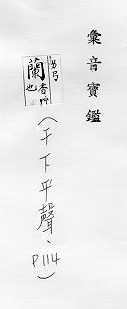 彙音寶鑑
蘭香艸也
(干下平聲、P114)